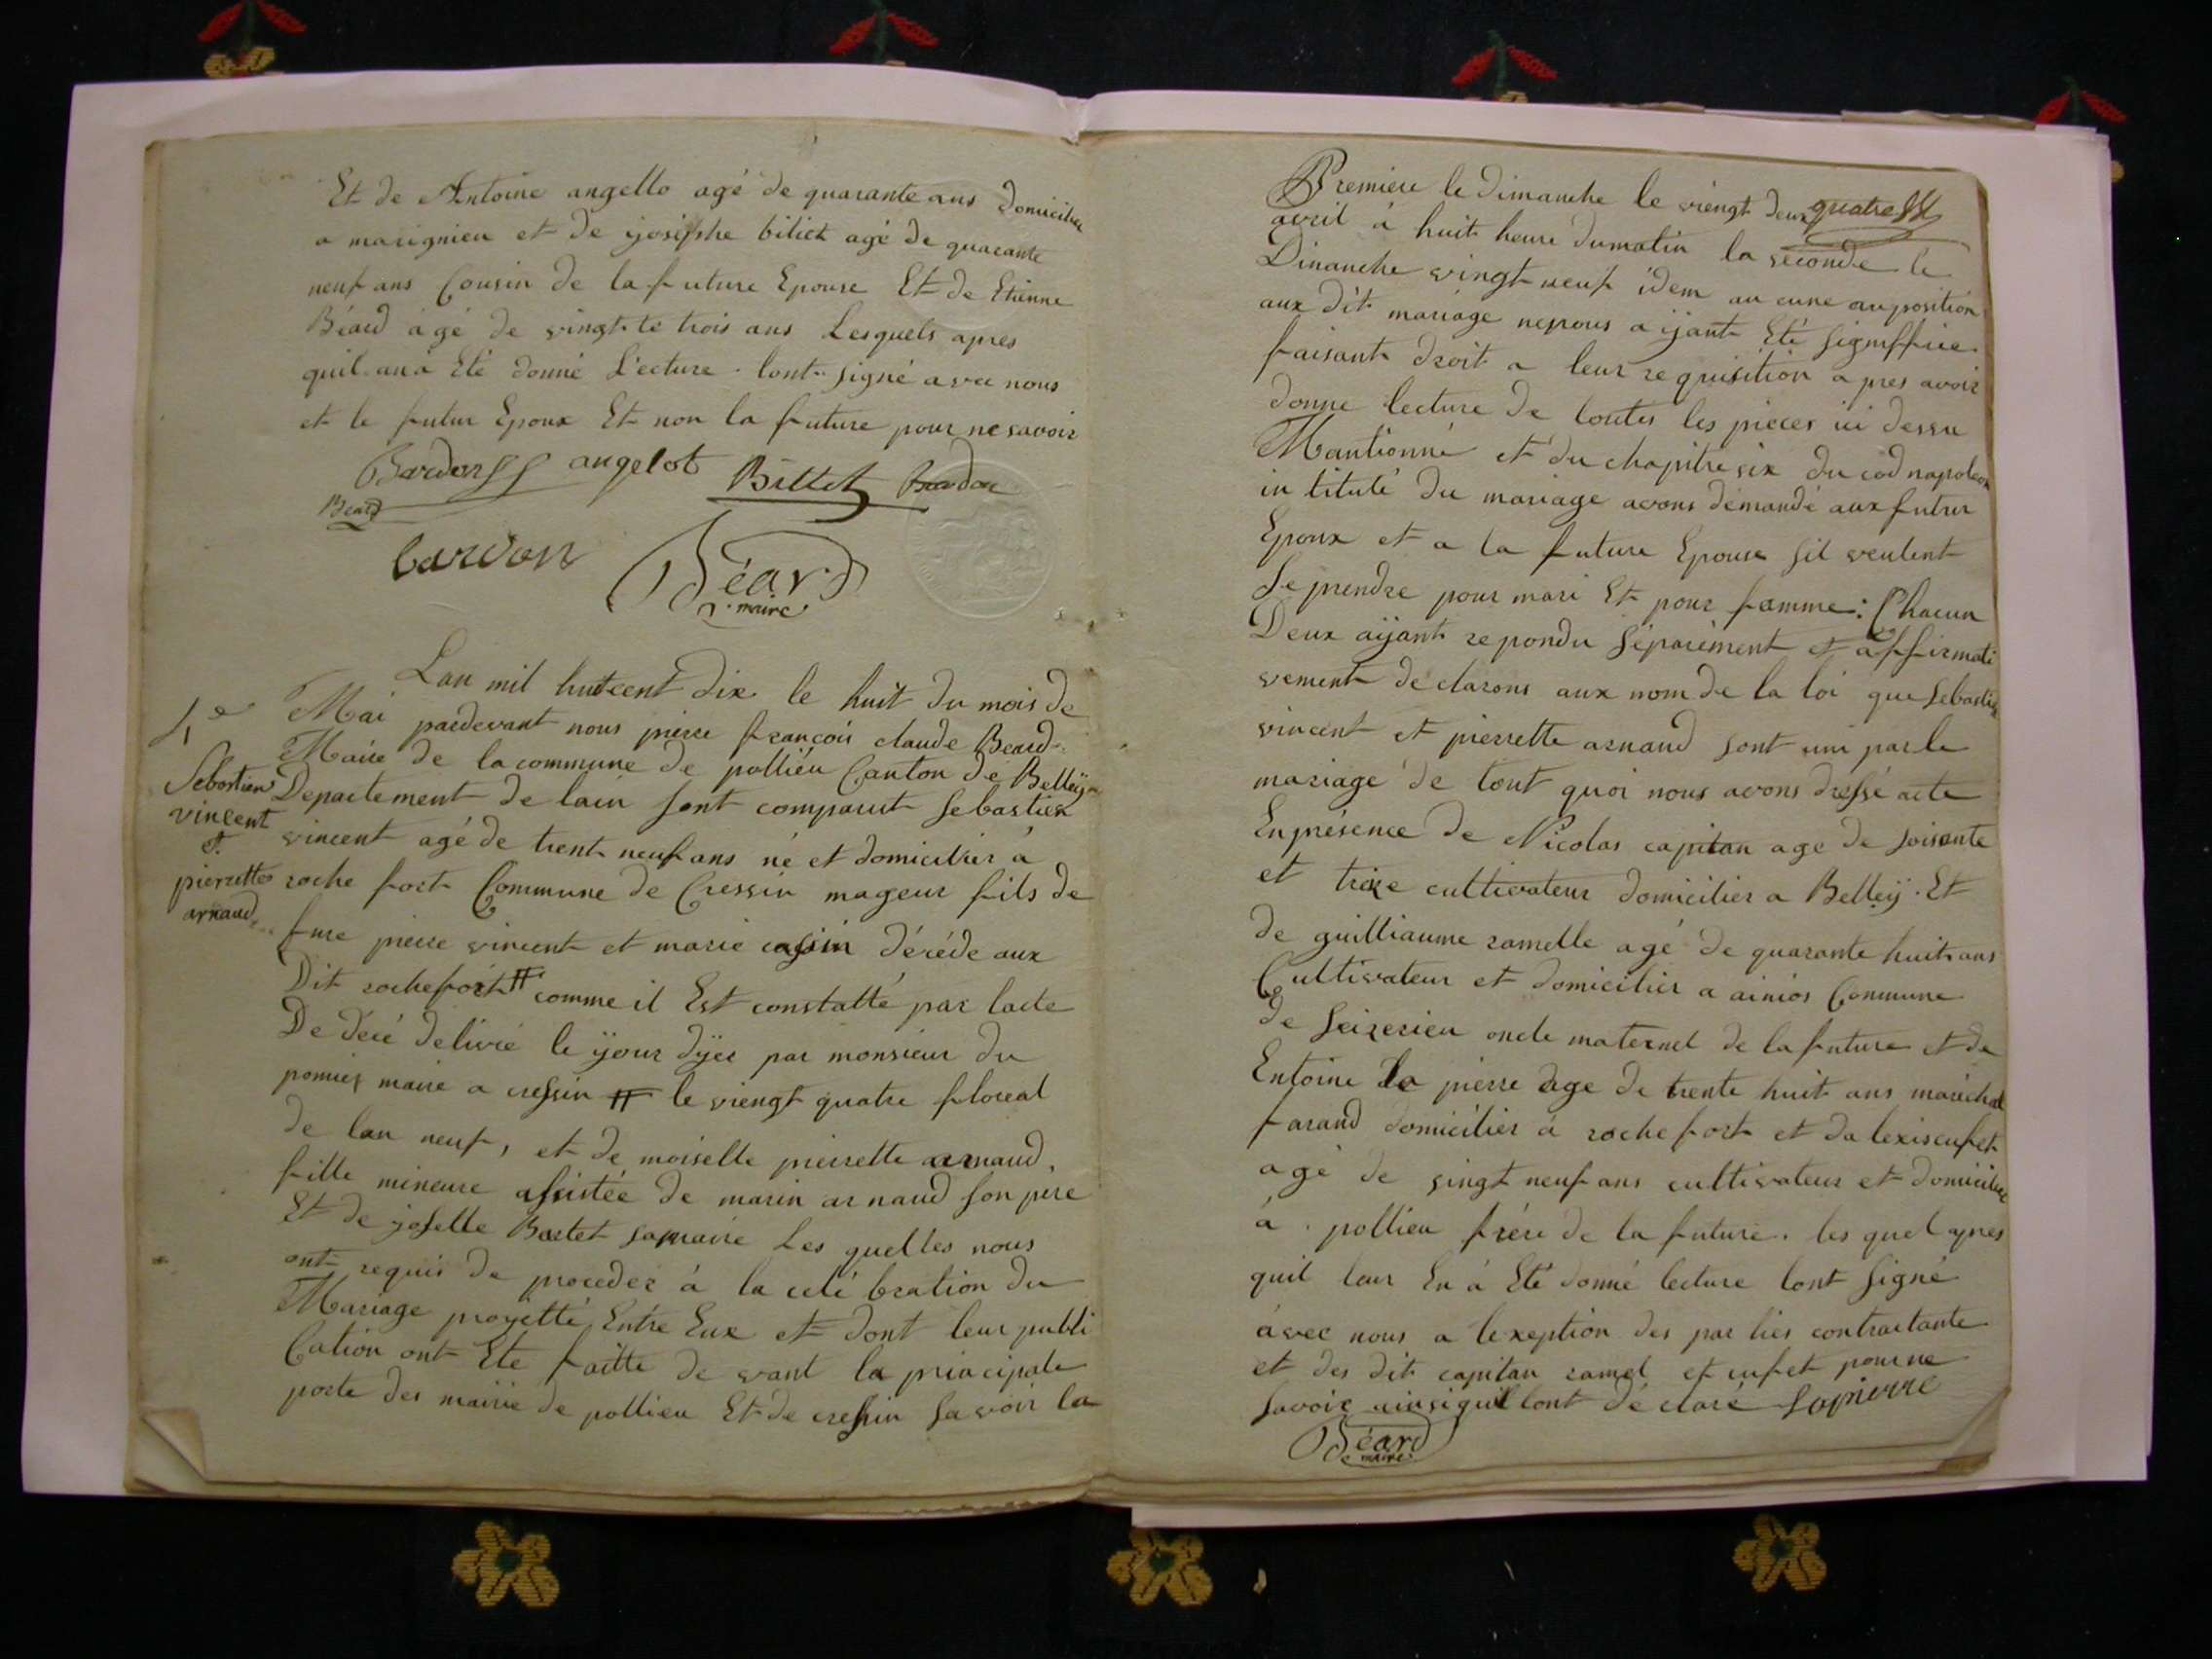 Et de Antoine angello agé de quarante ans domicilier
a marignieu et de ijosephe billet agé de quarante
neuf ans Cousin de la future Epouse Et de Etienne
Béard àgé de vingt te trois ans Lesquels apres
quil an à Eté donné L'ecture lont signé avec nous
et le futur Epoux Et non la future pour ne savoir
Bardon angelot Billet Bardon
Beard
bardon Béard
maire
Lan mil huitcent dix le huit du mois de
Mai pardevant nous pierre françois claude Beard
Maire de la commune de pollieu Canton de Belleÿ
Departement de lain sont comparut Sebastien
vincent agé de trent neuf ans né et domicilier à
roche fort Commune de Cressin mageur fils de
fure pierre vincent et marie cassin dérédé aux
Dit rochefort # comme il Est constatté par lacte
De décé delivré le ÿour dÿer par monsieur du
pomier maire a cressin # le viengt quatre floreal
de lan neuf, et de moiselle pierrette arnaud,
fille mineure assistée de marin arnaud son pere
Et de joselle Bartet sa maire Les quelles nous
ont requis de proceder à la celé bration du
Mariage proyetté Entre Eux et dont leur publi
Cation ont Ete faitte de vant la principale
porte des mairie de pollieu Et de cressin savoir la
4e
Sebastien
vincent
et
pierrette
arnaud
Premiere le dimanche le viengt deux quatre
avril à huit heure dumatin la seconde le
Dimanche vingt neuf idem au cune auposition
aux dit mariage nepous aijant Eté signiffiée
faisant droit a leur requisition apres avoir
donne lecture de toutes les pieces ici dessu
Mantionné et du chapitre six du cod napoleon
in titulé du mariage avons demandé aux futur
Epoux et a la future Epouse sil veulent
Se prendre pour mari Et pour famme : Chacun
Deux aÿant repondu séparément et affirmati
vement déclarons aux nom de la loi que Sebastien
vincent et pierrette arnaud sont uni par le
mariage de tout quoi nous avons dressé acte
En présence de Nicolas capitan age de soisante
et treize cultivateur domicilier a Belleÿ. Et
de guilliaume ramelle agé de quarante huit ans
Cultivateur et domicilier a ainios Commune
de Seizerieu oncle maternel de la future et de
Entoine la pierre age de trente huit ans maréchal
farand domicilier à roche fort et dalexis cufet
agé de vingt neuf ans cultivateur et domicilier
à pollieu frére de la future. les quel apres
quil leur En à Eté donné lecture lont signé
àvec nous a lexeption des par ties contractante
et des dit capitan ramel et cufet pour ne
savoir ainsi quil lont déclaré Lapierre
Béard
maire